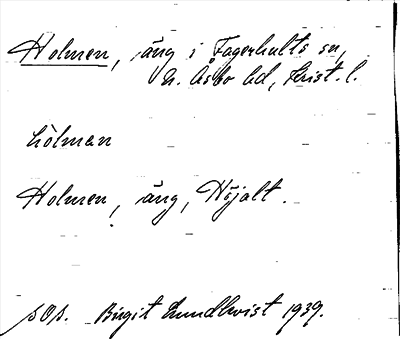 Holmen, äng i Fagerhults sn,
N. Åsbo hd, Krist. l.
hòlman
Holmen, äng, Höjalt.
SOS. Birgit Lundkvist 1939.